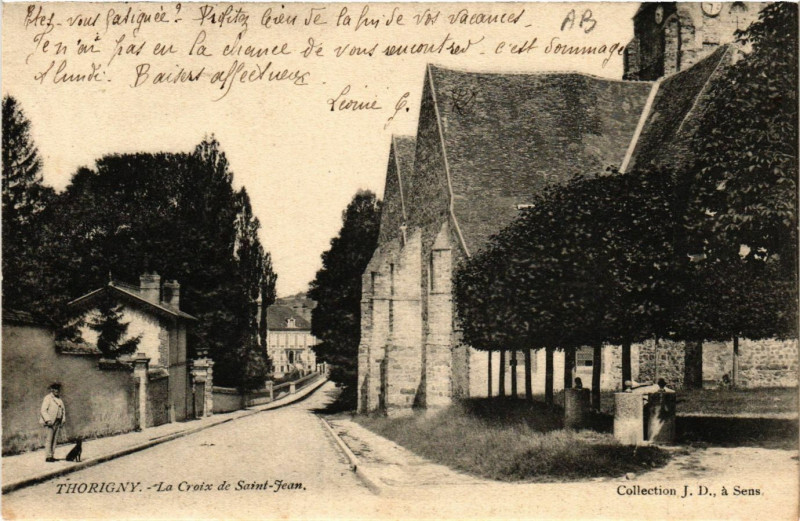 Êtes-vous fatiguée? Profitez bien de la fin de vos vacances.
Je n'ai pas eu la chance de vous rencontrer. c'est dommage
A lundi. Baisers affectueux.
Léonie G.
AB
THORIGNY. - La Croix de Saint-Jean.
Collection J. D., à Sens.